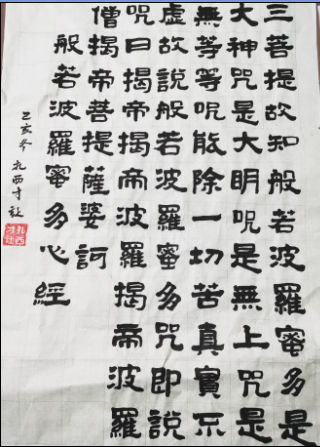 三菩提故知般若波羅蜜多是
大神咒是大明咒是無上咒是
無等等呪能除一切苦真實不
虛故説般若波羅蜜多咒即說
咒曰揭帝揭帝波羅揭帝波羅
僧揭帝菩提薩婆訶
般若波羅蜜多心經
己亥冬